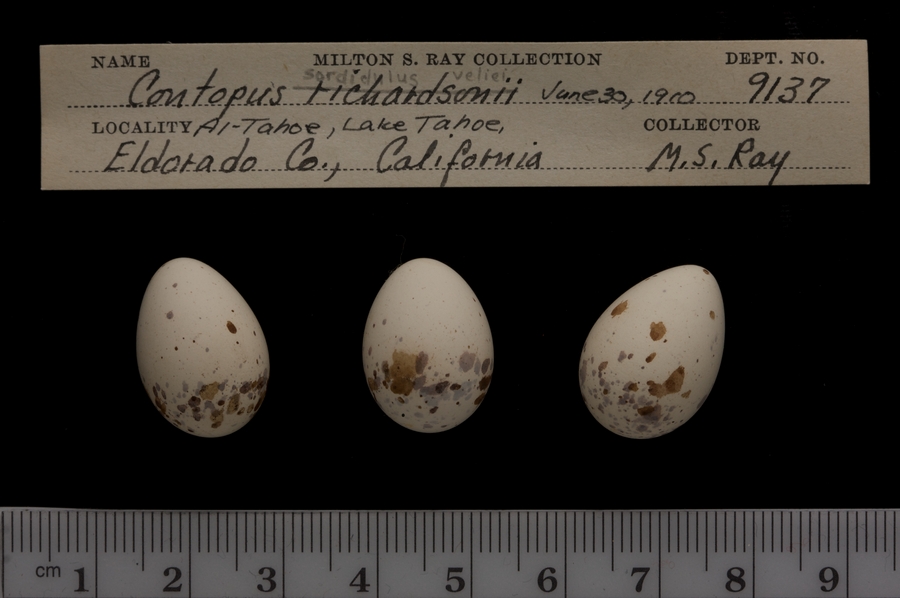 NAME MILTON S. RAY COLLECTION DEPT. NO.
sordidulus veliei
Contopus richardsonii June 30, 1900 9137
LOCALITY Al-Tahoe, Lake Tahoe, COLLECTOR
Eldorado Co., California M.S. Ray
cm 1 2 3 4 5 6 7 8 9